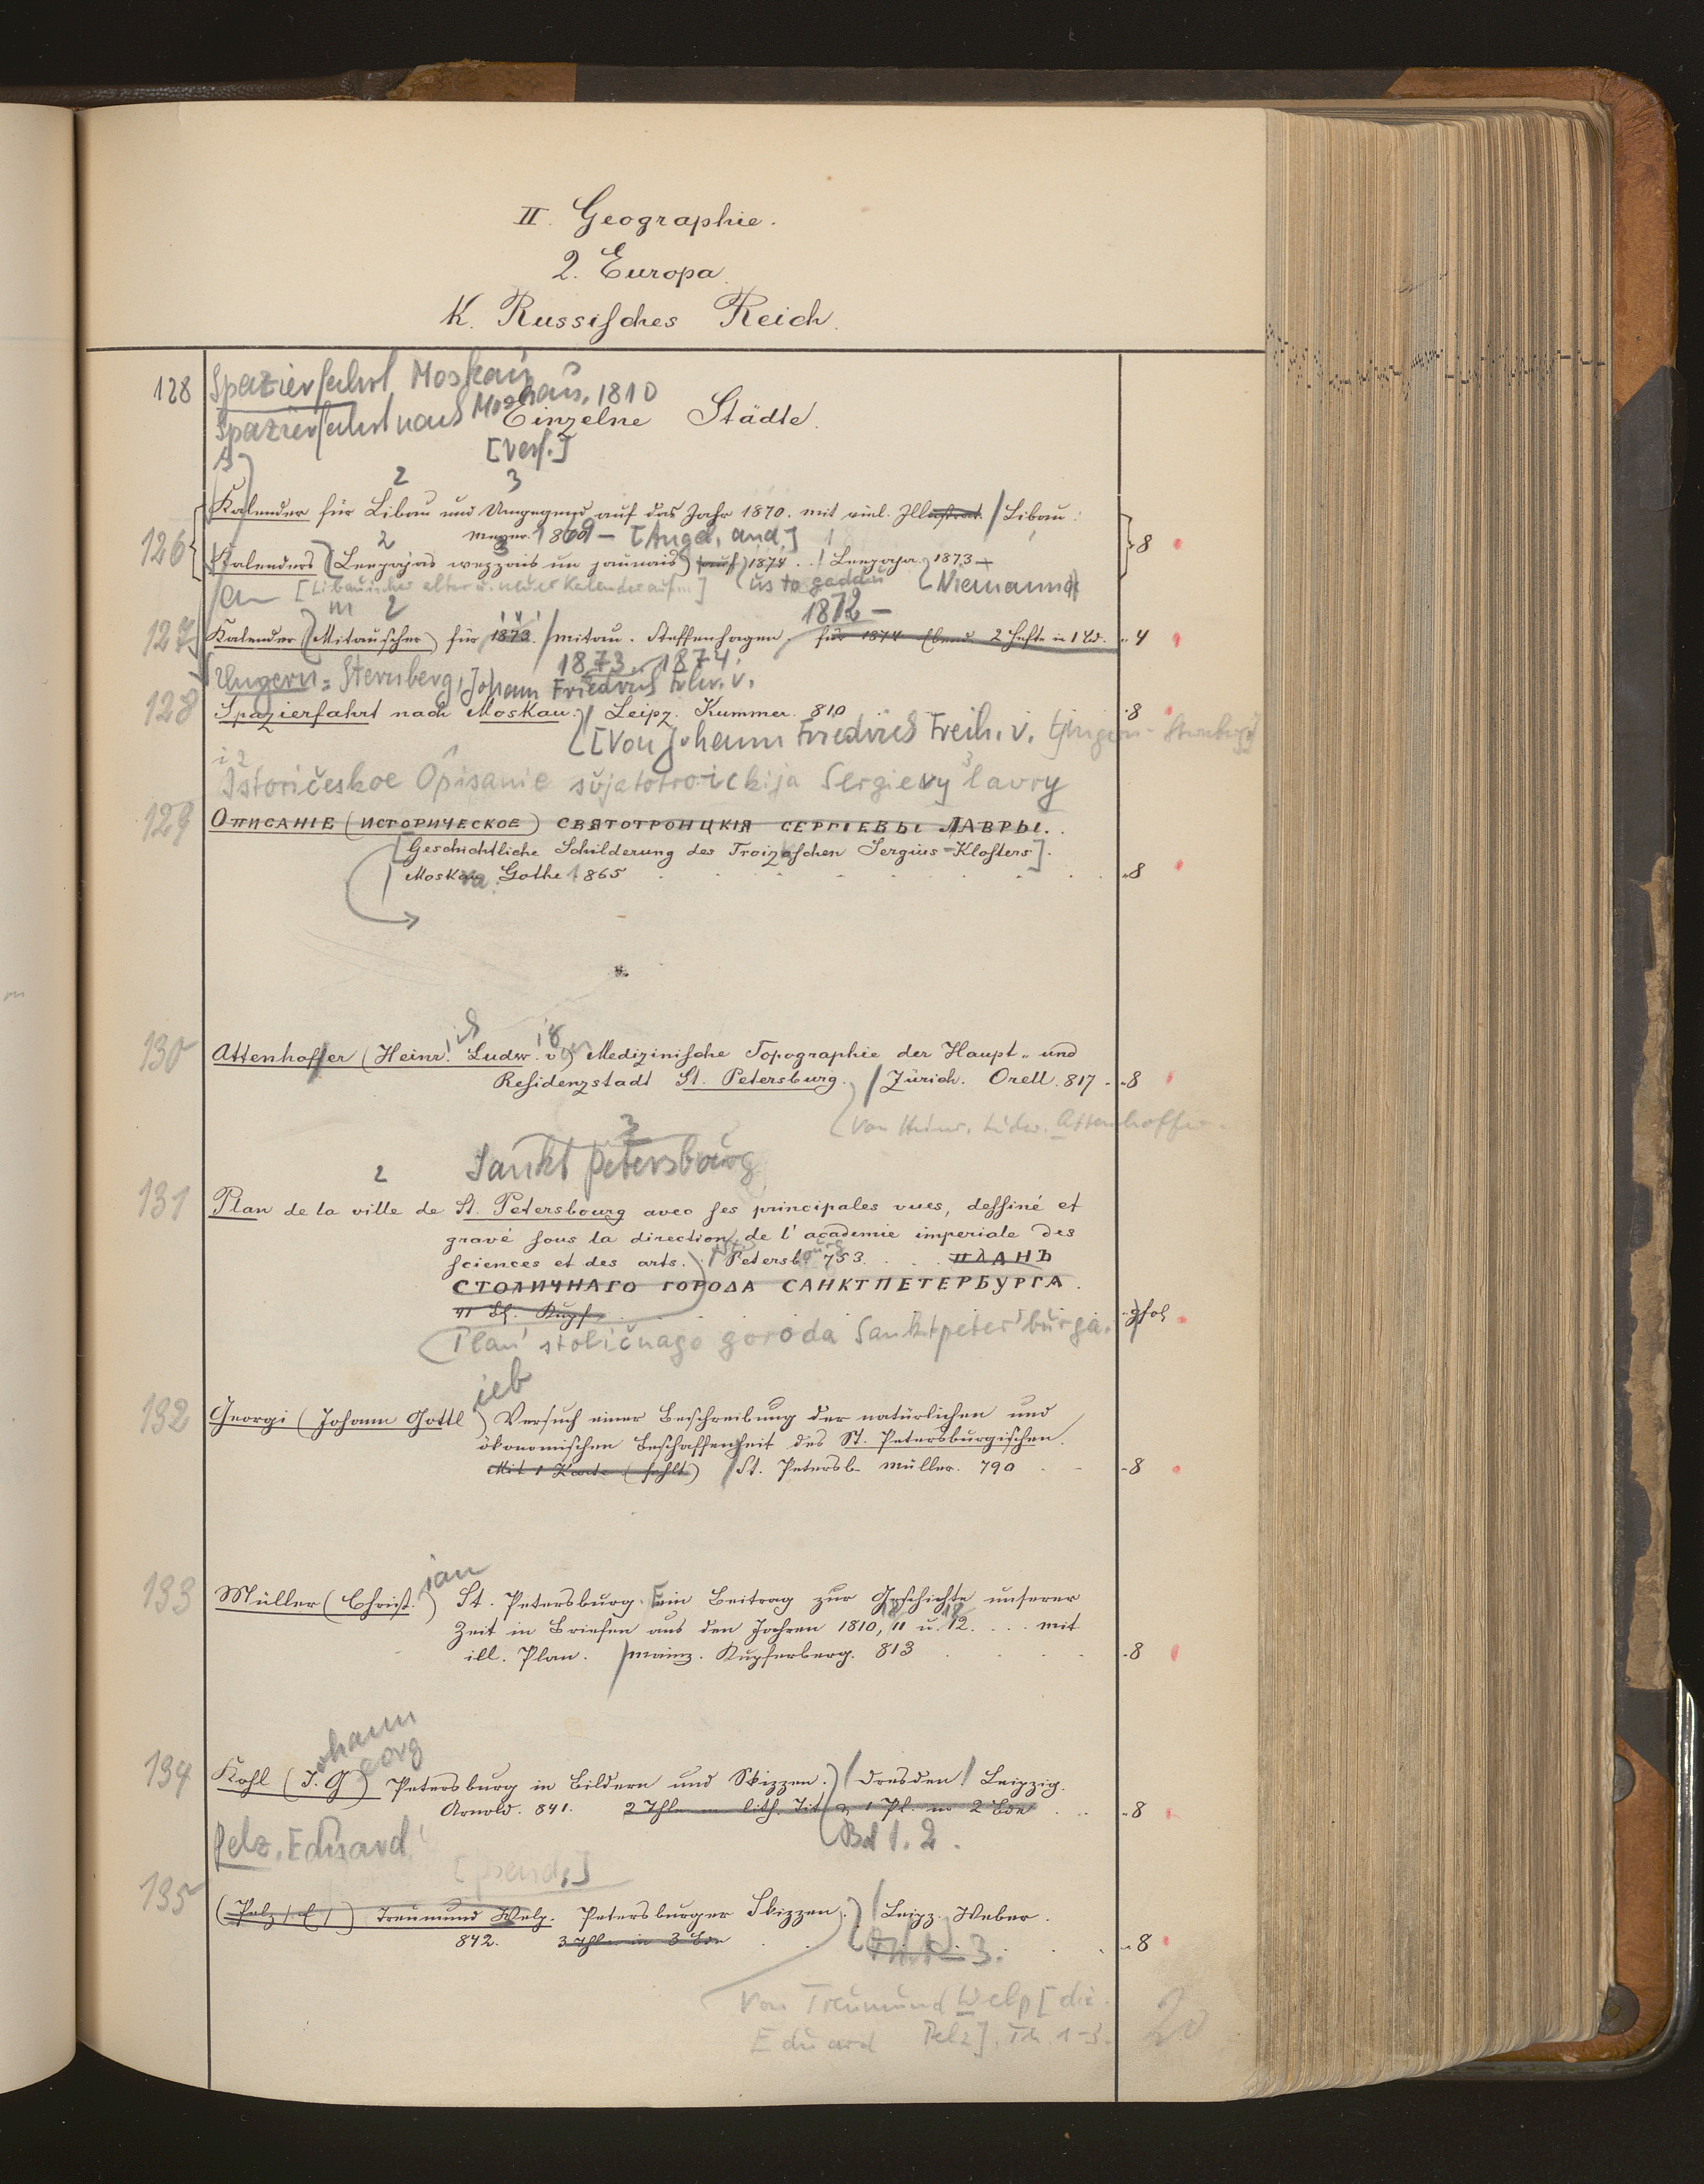 II. Geographie.
2. Europa.
K. Russisches Reich.
128 Spazierfahrt Moskau
Spazierfahrt nach Moskau, 1810
Einzelne Städte.
[Verf.]
2 3
Kalender für Libau und Umgegend auf das Jahr 1870. mit viel. Illustrat. / Libau:
126 2 Meyer. 1869 – [Angeb. and.] 8
Kalenders (Leepajas wezzais un jaunais) auf 1874 . . / Leepaja 1873 –
[Libauischer alter u. neuer Kalender auf ...] us to gaddu Niemann
m 2 1872 –
127 Kalender (Mitauscher) für 1873. / Mitau. Steffenhagen. für 1874 Ebend. 2 Hefte in 1 Bd. 4
1873. 1874.
Ungern-Sternberg, Johann Friedrich Frhr. v.
128 Spazierfahrt nach Moskau. / Leipz. Kummer. 810 8
[Von Johann Friedrich Freih. v. Ungern-Sternberg]
i 2
Istoričeskoe Opisanie svjatotroickija Sergievy lavry
3
129 Описаніе (историческое) святотроицкія сергіевы лавры.
[Geschichtliche Schilderung des Troizaschen Sergius-Klosters].
Moskau. Gothe 1865 8
130 Attenhoffer (Heinr. Ludw. v.) Medizinische Topographie der Haupt- und
Residenzstadt St. Petersburg. / Zürich. Orell. 817 8
(Von Heinr. Ludw. Attenhoffer.
3
2 Sankt Petersbourg
131 Plan de la ville de St. Petersbourg avec ses principales vues, dessiné et
gravé sous la direction de l'academie imperiale des
sciences et des arts. / Petersb. 753. ПЛАНЪ
СТОЛИЧНАГО ГОРОДА САНКТПЕТЕРБУРГА.
Bl. Kupf. gfol
Plan stoličnago goroda Sanktpeterburga.
132 Georgi (Johann Gottlieb) Versuch einer Beschreibung der natürlichen und
ökonomischen Beschaffenheit des St. Petersburgischen.
Mit 1 Karte (fehlt) / St. Petersb. Müller. 790 8
133 Müller (Christian) St. Petersburg. Ein Beitrag zur Geschichte unserer
Zeit in Briefen aus den Jahren 1810, 11 u. 12. . . . mit
ill. Plan. / Mainz. Kupferberg. 813 8
ohann
eorg
134 Kohl (J. G) Petersburg in Bildern und Skizzen. / Dresden / Leipzig.
Arnold. 841. 2 Thle m lith. Tit u 1 Pl. in 2 Bde 8
Bd 1. 2.
Pelz, Eduard
[pseud.]
135 (Pelz / E /) Treumund Welp. Petersburger Skizzen. / Leipz. Weber.
842. 3 Thle in 3 Bde 8
Th. 1–3.
Von Treumund Welp [d. i.
Eduard Pelz]. Th. 1–3. 20